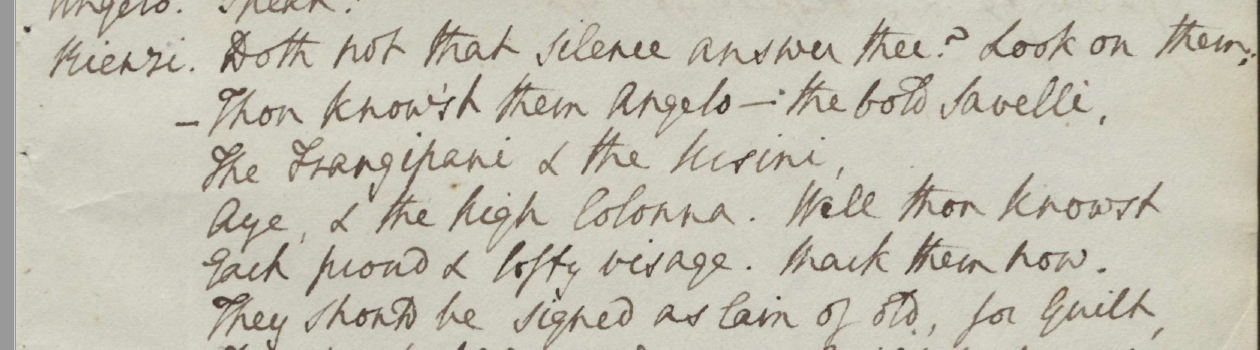 Angelo. Speak!
Rienzi. Doth not that silence answer thee? Look on them;
– Thou know'st them Angelo – the bold Savelli,
The Frangipani & the Ursini,
Aye, & the high Colonna. Well thou knowst
Each proud & lofty visage. Mark them now.
They should be signed as Cain of old, for Guilt,